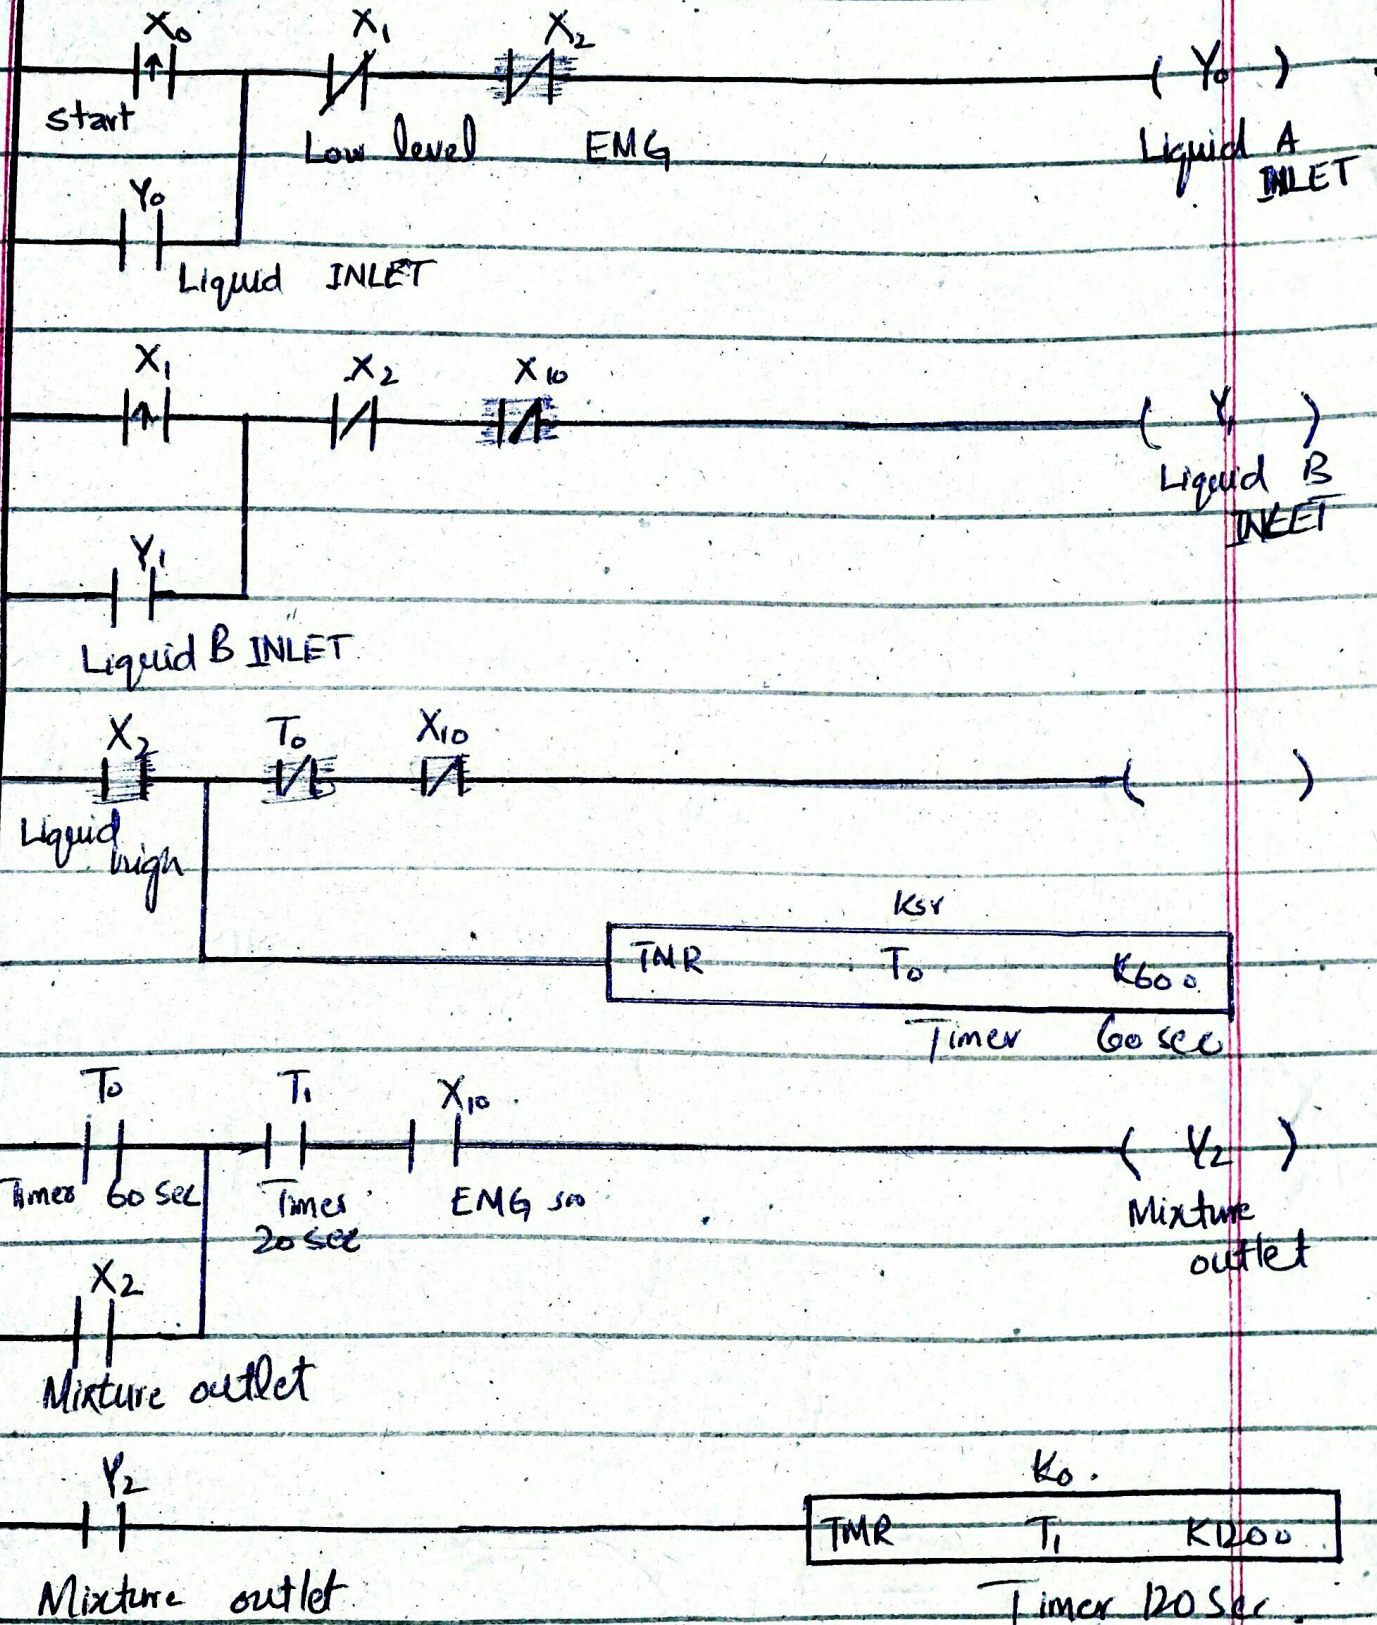 X0 X1 X2 ( Y0 )
start Low level EMG Liquid A
INLET
Y0
Liquid INLET
X1 X2 X10 ( Y1 )
Liquid B
INLET
Y1
Liquid B INLET
X2 T0 X10 ( )
Liquid
high
TMR T0 K600
Timer 60 sec
T0 T1 X10 ( Y2 )
Timer 60 sec Timer EMG Mixture
20 sec outlet
X2
Mixture outlet
Y2 K0.
TMR T1 K1200
Mixture outlet Timer 120 Sec.